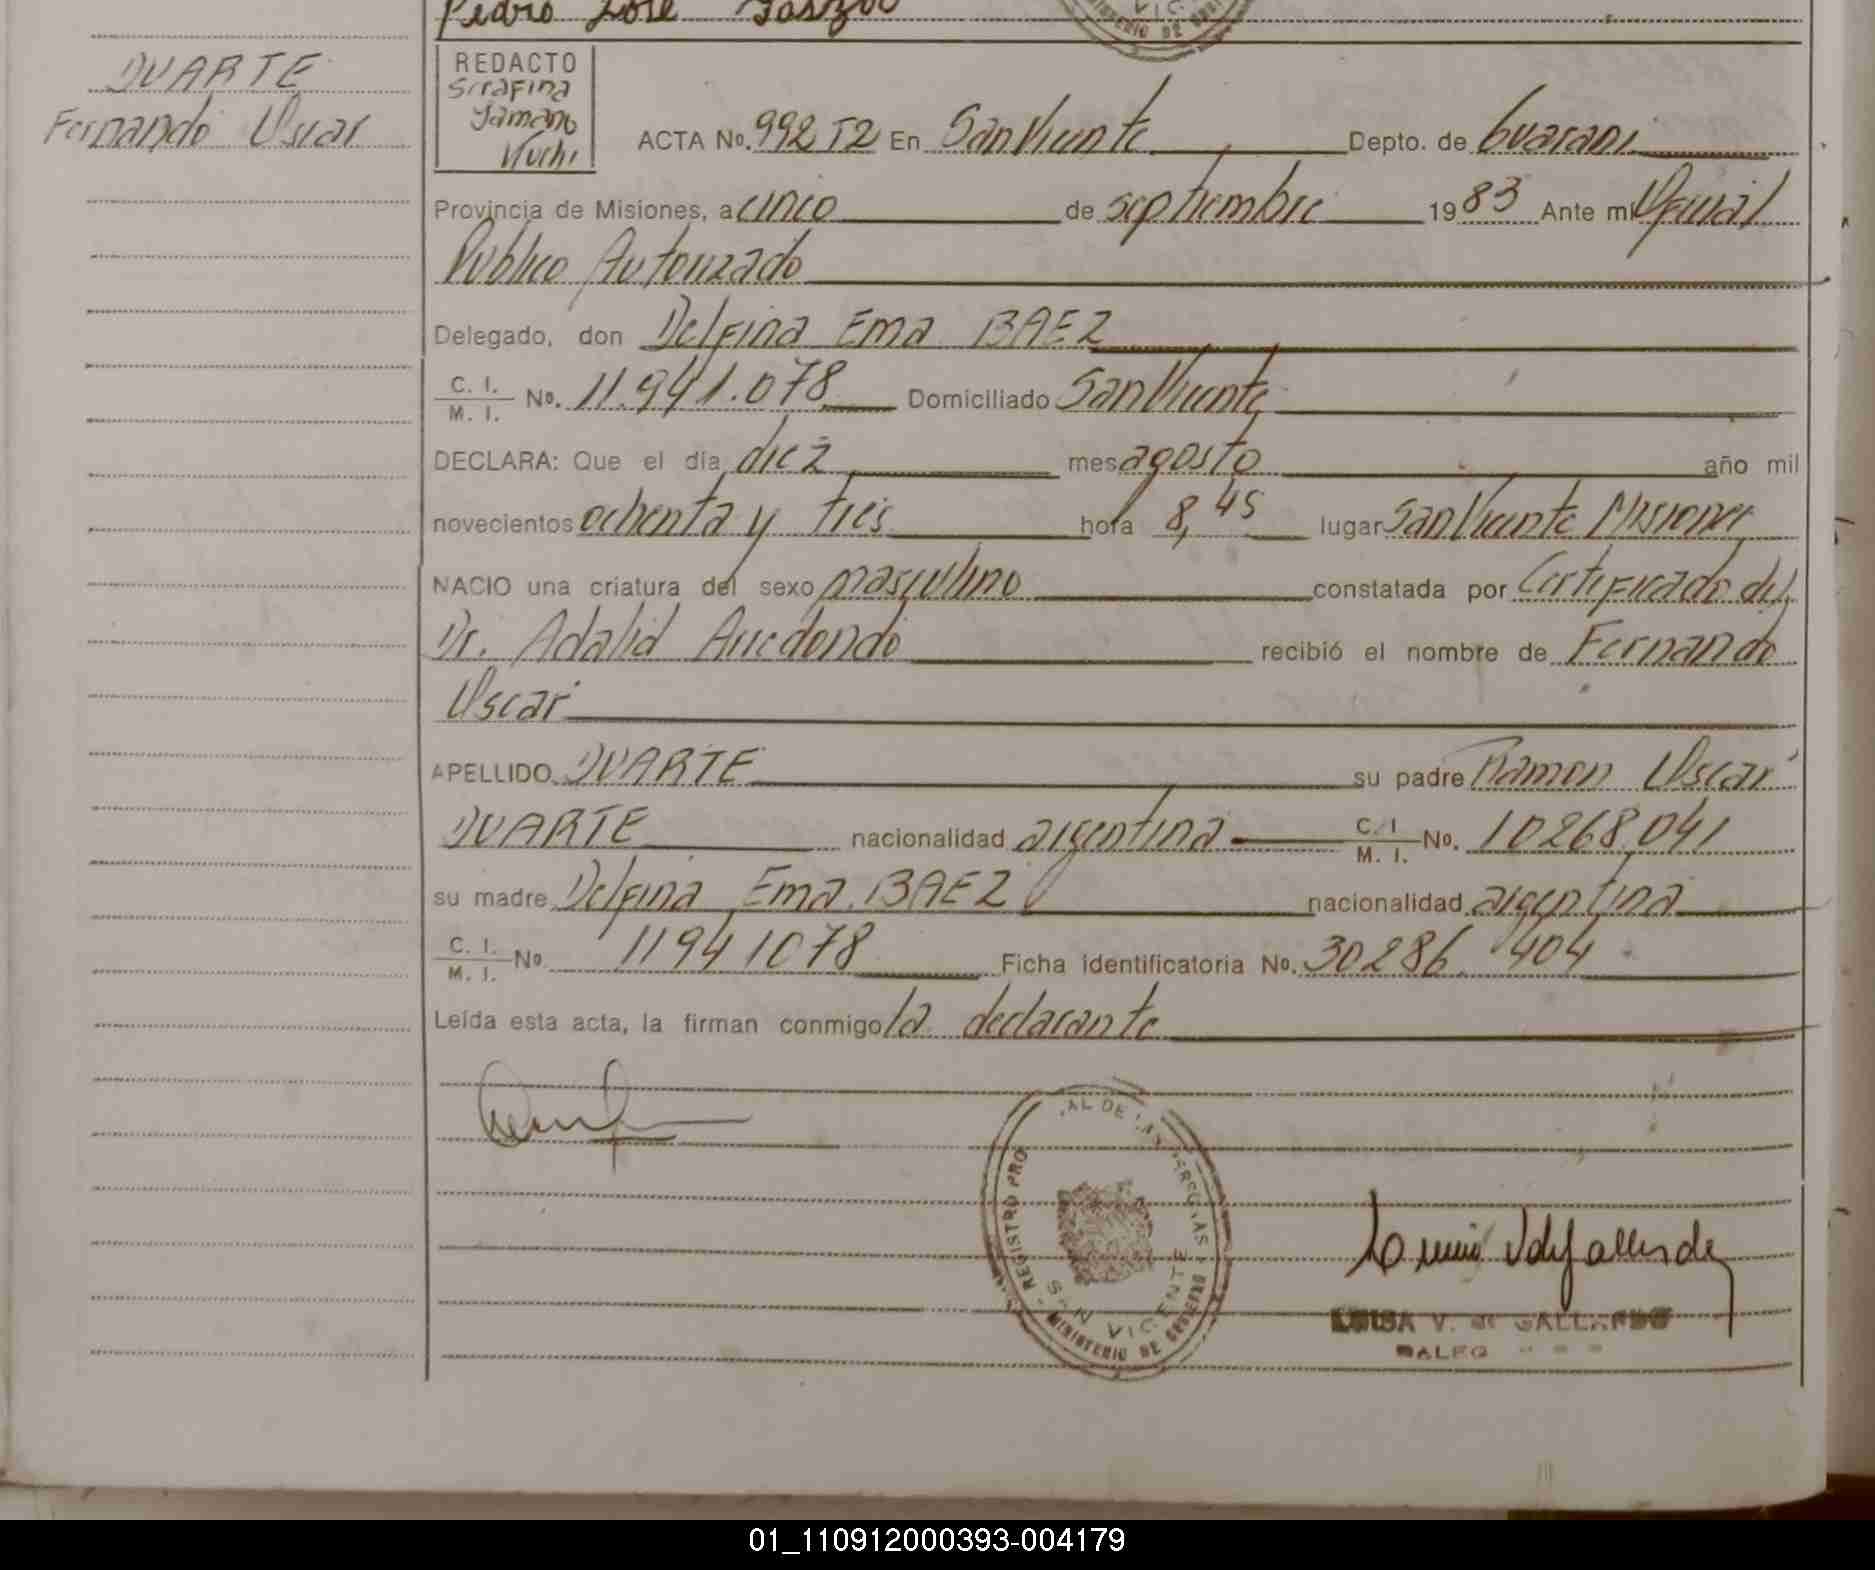 Pedro José
DUARTE
Fernando Oscar
REDACTO
Serafina
Vuchi
ACTA No. 992 T2 En San Vicente Depto. de Guarani
Provincia de Misiones, a cinco de septiembre 1983 Ante mi Oficial
Publico Autorizado
Delegado, don Delfina Ema BAEZ
C. I. M. I. No. 11.941.078 Domiciliado San Vicente
DECLARA: Que el día diez mes agosto año mil
novecientos ochenta y tres hora 8,45 lugar San Vicente Misiones
NACIO una criatura del sexo masculino constatada por Certificado del
Dr. Adalid Arredondo recibió el nombre de Fernando
Oscar
APELLIDO DUARTE su padre Ramon Oscar
DUARTE nacionalidad argentina C. I. M. I. No. 10268.041
su madre Delfina Ema BAEZ nacionalidad argentina
C. I. M. I. No 11941078 Ficha identificatoria No. 30286.404
Leída esta acta, la firman conmigo la declarante
REGISTRO PRO AL DE LAS PERSONAS
SAN VICENTE
MINISTERIO DE GOBIERNO
LUISA V. de GALLARDO
01_110912000393-004179